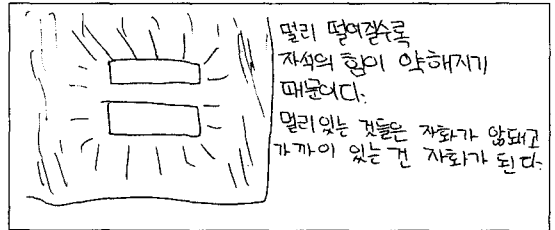 멀리 떨어질수록
자석의 힘이 약해지기
때문이다.
멀리있는 것들은 자화가 않돼고
가까이 있는 건 자화가 된다.